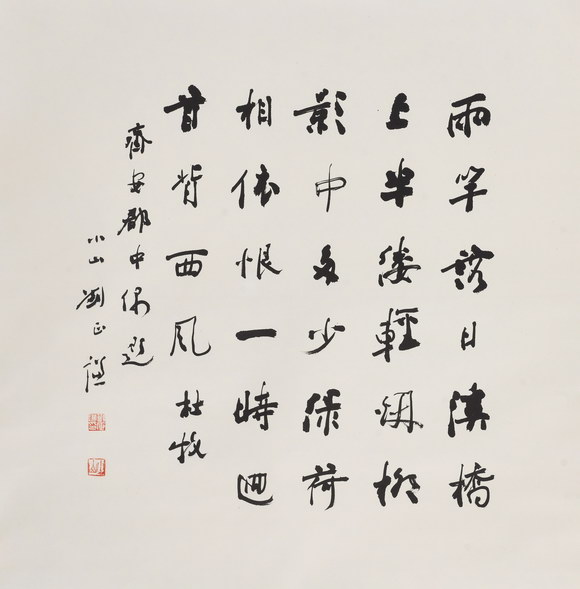 兩竿落日溪橋
上半縷輕烟柳
影中多少綠荷
相依恨一時迴
首背西風杜牧
齊安郡中偶題
小山劉正謙